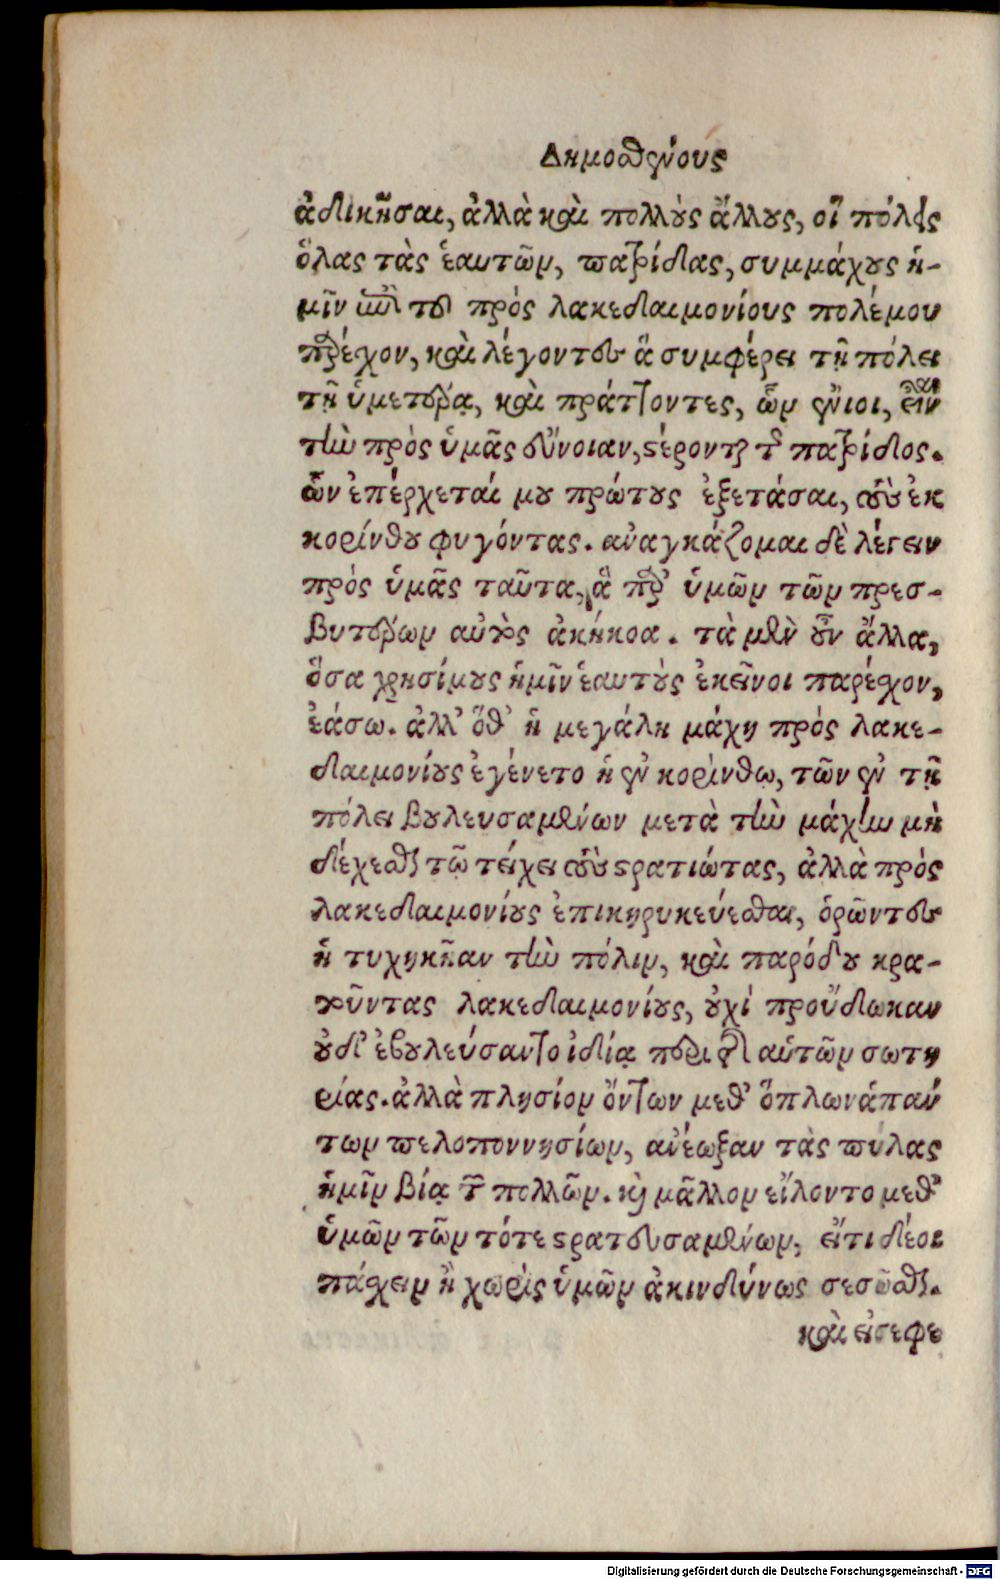 Δημοσθένους
ἀδικῆσαι, ἀλλὰ καὶ πολλοὺς ἄλλους, οἳ πόλεις
ὅλας τὰς ἑαυτῶν, πατρίδας, συμμάχους ἡ-
μῖν ἐπὶ τοῦ πρὸς λακεδαιμονίους πολέμου
παρέχον, καὶ λέγοντες ἃ συμφέρει τῇ πόλει
τῇ ὑμετέρᾳ, καὶ πράττοντες, ὧν ἔνιοι, διὰ
τὴν πρὸς ὑμᾶς εὔνοιαν, στέρονται τῆς πατρίδος.
ὧν ἐπέρχεταί μου πρώτους ἐξετάσαι, τοὺς ἐκ
κορίνθου φυγόντας. ἀναγκάζομαι δὲ λέγειν
πρὸς ὑμᾶς ταῦτα, ἃ παρ' ὑμῶν τῶν πρεσ-
βυτέρων αὐτὸς ἀκήκοα. τὰ μὲν οὖν ἄλλα,
ὅσα χρησίμους ἡμῖν ἑαυτοὺς ἐκεῖνοι παρέχον,
ἐάσω. ἀλλ' ὅθ' ἡ μεγάλη μάχη πρὸς λακε-
δαιμονίους ἐγένετο ἡ ἐν κορίνθω, τῶν ἐν τῇ
πόλει βουλευσαμένων μετὰ τὴν μάχην μὴ
δέχεσθαι τῷ τείχει τοὺς στρατιώτας, ἀλλὰ πρὸς
λακεδαιμονίους ἐπικηρυκεύεσθαι, ὁρῶντες
ἠτυχηκῆαν τὴν πόλιν, καὶ παρόδου κρα-
τοῦντας λακεδαιμονίους, οὐχὶ προὔδωκαν
οὐδ' ἐβουλεύσαντο ἰδίᾳ περὶ τῆς αὑτῶν σωτη
ρίας. ἀλλὰ πλησίον ὄντων μεθ' ὅπλων ἁπάν
των πελοποννησίων, ἀνέωξαν τὰς πύλας
ἡμῖν βίᾳ τῶν πολλῶν. καὶ μᾶλλον εἵλοντο μεθ'
ὑμῶν τῶν τότε στρατευσαμένων, εἴτι δέοι
πάσχειν ἢ χωρὶς ὑμῶν ἀκινδύνως σεσῶσθαι.
καὶ εἰσεφε
Digitalisierung gefördert durch die Deutsche Forschungsgemeinschaft - DFG